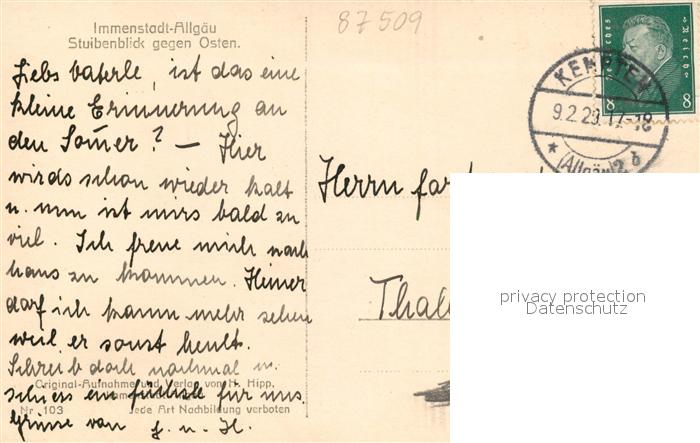 87509
Immenstadt-Allgäu
Stuibenblick gegen Osten.
Deutsches Reich
8 8
KEMPTEN
9.2.29. 17-18
* (Allgäu) 2 b
Liebs vaterle, ist das eine
kleine Erinnerung an
den Somer? — Hier
wirds schon wieder kalt
u. nun ist mirs bald zu
viel. Ich freue mich nach
haus zu kommen. Heiner
darf ich kaum mehr sehen
weil er sonst heult.
Schreib doch nochmal u.
ein für uns.
Grüsse von J. u. H.
Original-Aufnahme und Verlag von H. Hipp,
Nr. 103 Jede Art Nachbildung verboten
Herrn
Thal
privacy protection
Datenschutz